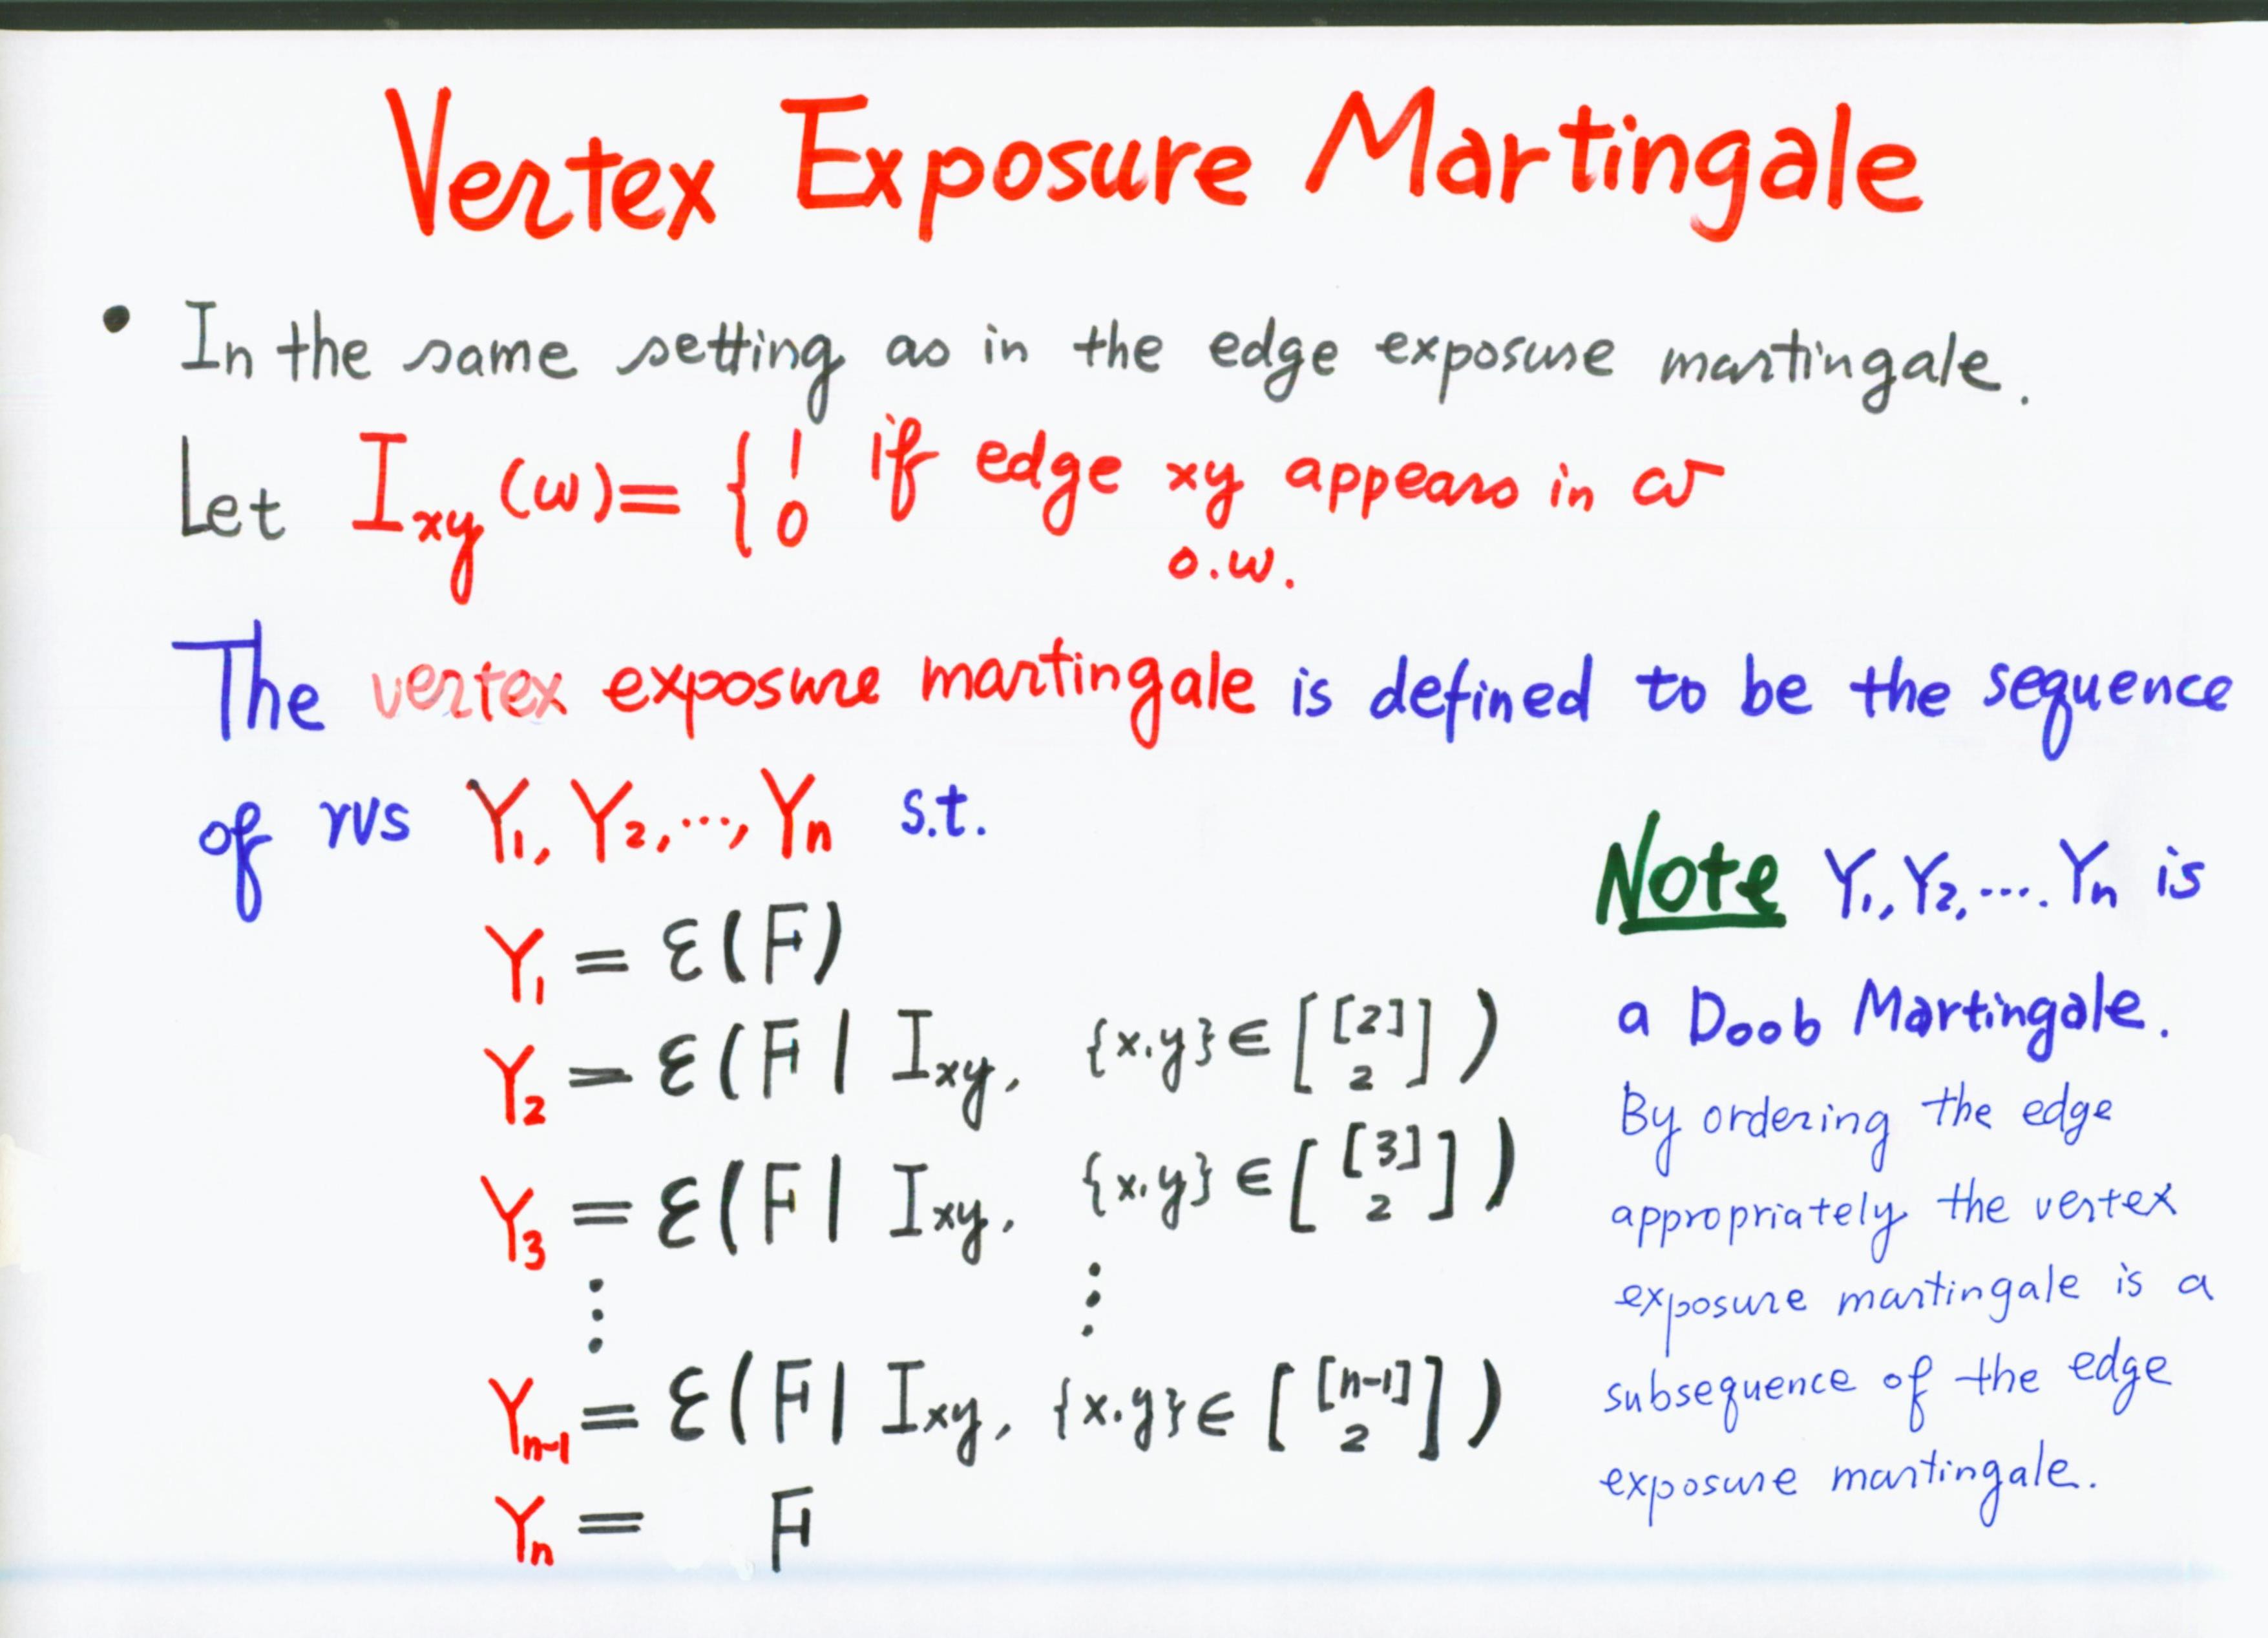 Vertex Exposure Martingale
• In the same setting as in the edge exposure martingale.
Let I_xy(ω) = { 1 if edge xy appears in ω
0 o.w.
The vertex exposure martingale is defined to be the sequence
of rvs Y₁, Y₂, ..., Yₙ s.t.
Y₁ = Ɛ(F)
Y₂ = Ɛ(F | I_xy, {x,y} ∈ [ [2] 2 ] )
Y₃ = Ɛ(F | I_xy, {x,y} ∈ [ [3] 2 ] )
⋮ ⋮
Yₙ₋₁ = Ɛ(F | I_xy, {x,y} ∈ [ [n-1] 2 ] )
Yₙ = F
Note Y₁, Y₂, .... Yₙ is
a Doob Martingale.
By ordering the edge
appropriately the vertex
exposure martingale is a
subsequence of the edge
exposure martingale.